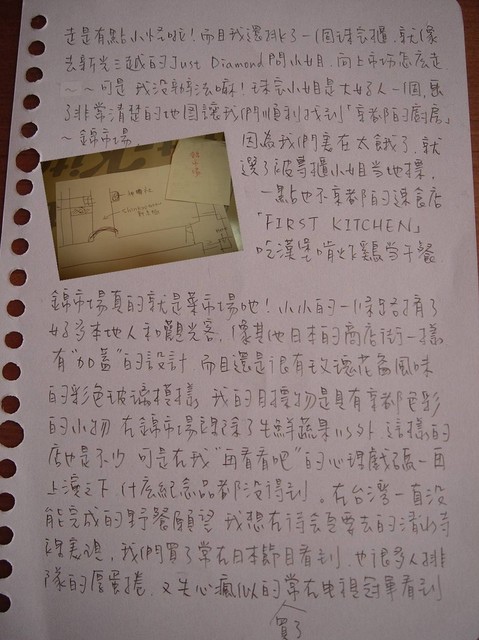 走是有點小怪啦!而且我還挑了一個珠寶櫃,就像
去新光三越的Just Diamond問小姐,向上市場怎麼走
~~可是我沒辦法嘛!珠寶小姐是大好人一個,畫
了非常清楚的地圖讓我們順利找到「京都的廚房」
~錦市場
因為我們實在太餓了,就
選了被專櫃小姐當地標,
一點也不京都的速食店
「FIRST KITCHEN」
吃漢堡啃炸雞當午餐
錦市場真的就是菜市場吧!小小的一條路擠了
好多本地人和觀光客,像其他日本的商店街一樣
有"加蓋"的設計 而且還是很有玫瑰花窗風味
的彩色玻璃模樣 我的目標物是具有京都色彩
的小物 在錦市場裡除了生鮮蔬果以外 這樣的
店也是不少 可是在我"再看看吧"的心理戲碼一再
上演之下,什麼紀念品都沒得到。在台灣一直沒
能完成的野餐願望 我想在待會要去的清水寺
裡實現,我們買了常在日本節目看到,也很多人排
隊的厚蛋捲,又失心瘋似的常在電視冠軍看到
買了